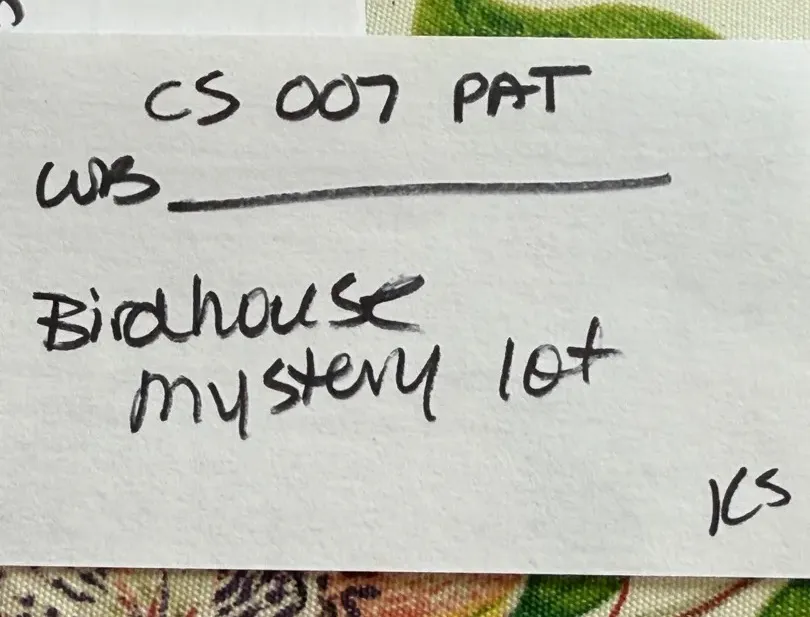 CS 007 PAT
WB
Birdhouse
mystery lot
KS